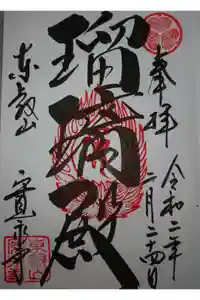 奉拝
令和二年
二月二十四日
瑠璃殿
東叡山
寛永寺